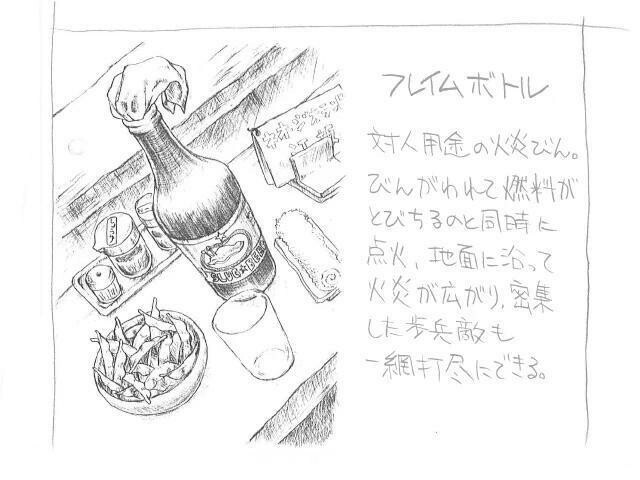 フレイムボトル
対人用途の火炎びん。
びんがわれて燃料が
とびちるのと同時に
点火、地面に沿って
火炎が広がり、密集
した歩兵敵も
一網打尽にできる。